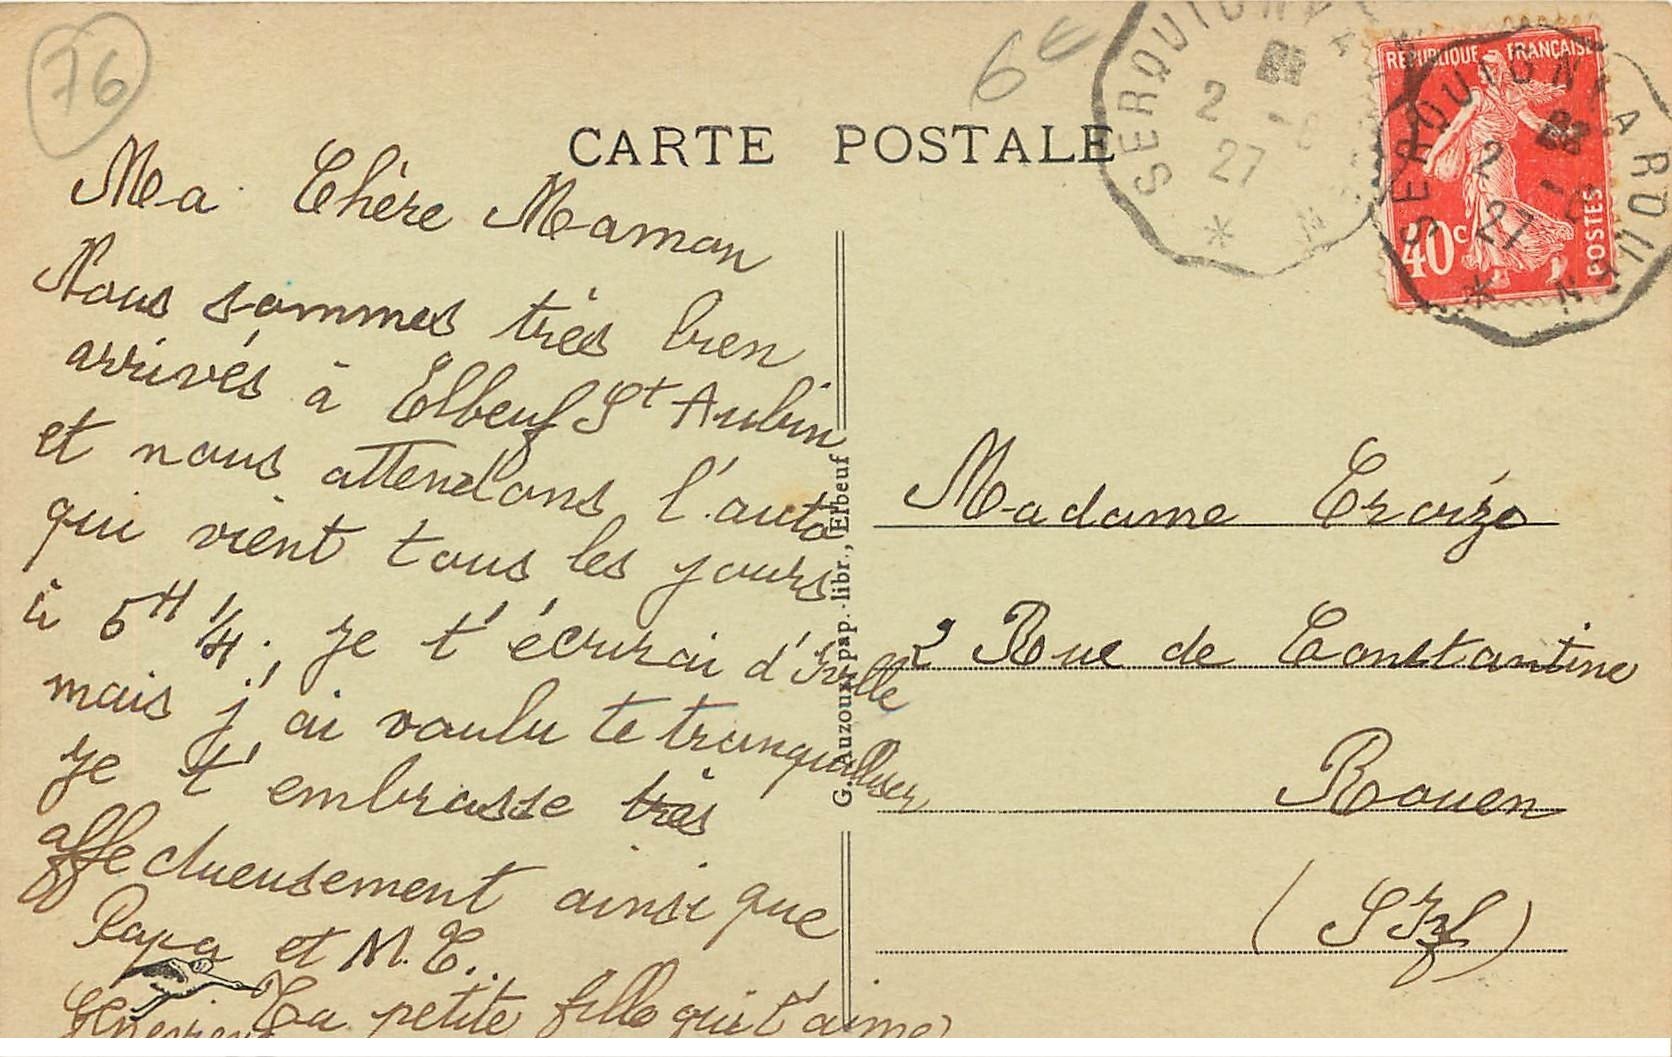 76
6€
CARTE POSTALE
SERQUIGNY A
2 -6
27
REPUBLIQUE FRANÇAISE
40c
POSTES
SERQUIGNY A ROUEN
2 -6
27
Ma Chère Maman
Nous sommes très bien
arrivés à Elbeuf St Aubin
et nous attendons l'auto
qui vient tous les jours
à 5H 1/4; je t'écrirai d'Iville
mais j'ai voulu te tranquilliser
Je t'embrasse très
affectueusement ainsi que
Papa et M.C..
Ta petite fille qui t'aime
Geneviève
G. Auzoux, pap.-libr., Elbeuf
Madame
2 Rue de Constantine
Rouen
(S Inf)